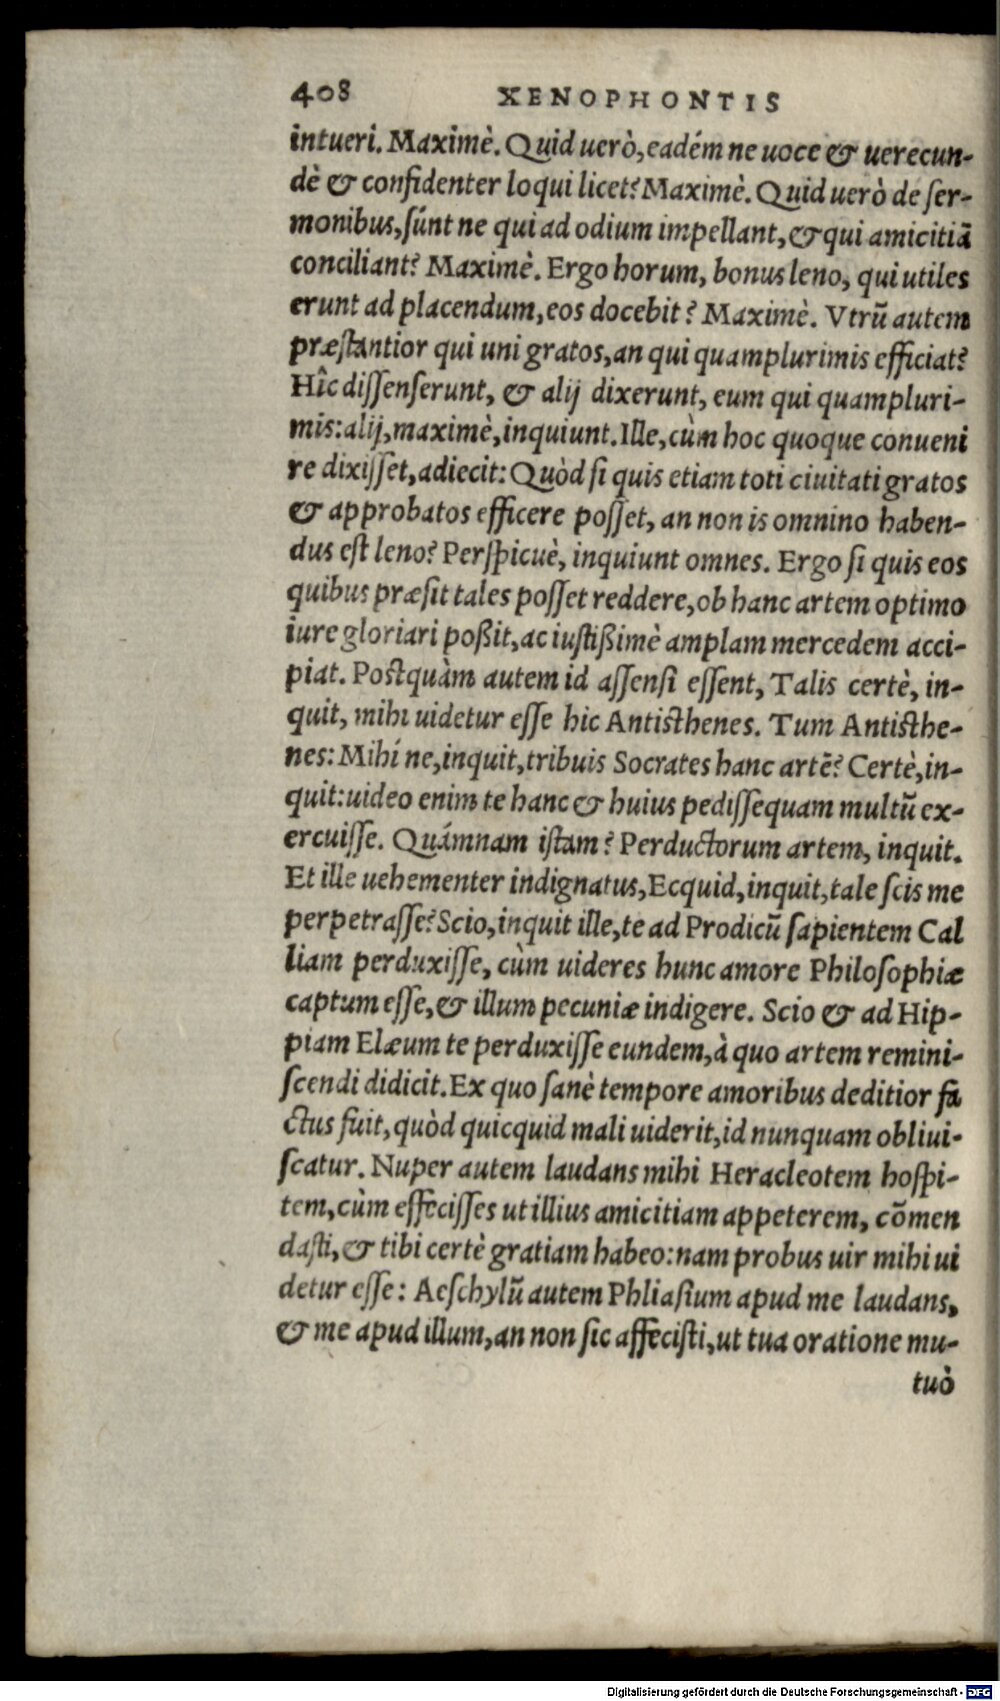 408 XENOPHONTIS
intueri. Maximè. Quid uerò, eadém ne uoce & uerecun-
dè & confidenter loqui licet? Maximè. Quid uerò de ser-
monibus, súnt ne qui ad odium impellant, & qui amicitiã
conciliant? Maximè. Ergo horum, bonus leno, qui utiles
erunt ad placendum, eos docebit? Maximè. Vtrũ autem
præstantior qui uni gratos, an qui quamplurimis efficiat?
Hîc dissenserunt, & alij dixerunt, eum qui quampluri-
mis: alij, maximè, inquiunt. Ille, cùm hoc quoque conueni
re dixisset, adiecit: Quòd si quis etiam toti ciuitati gratos
& approbatos efficere posset, an non is omnino haben-
dus est leno? Perspicuè, inquiunt omnes. Ergo si quis eos
quibus præsit tales posset reddere, ob hanc artem optimo
iure gloriari poßit, ac iustißimè amplam mercedem acci-
piat. Postquàm autem id assensi essent, Talis certè, in-
quit, mihi uidetur esse hic Antisthenes. Tum Antisthe-
nes: Mihí ne, inquit, tribuis Socrates hanc artẽ? Certè, in-
quit: uideo enim te hanc & huius pedissequam multũ ex-
ercuisse. Quámnam istam? Perductorum artem, inquit.
Et ille uehementer indignatus, Ecquid, inquit, tale scis me
perpetrasse? Scio, inquit ille, te ad Prodicũ sapientem Cal
liam perduxisse, cùm uideres hunc amore Philosophiæ
captum esse, & illum pecuniæ indigere. Scio & ad Hip-
piam Elæum te perduxisse eundem, à quo artem remini-
scendi didicit. Ex quo sanè tempore amoribus deditior fa
ctus fuit, quòd quicquid mali uiderit, id nunquam obliui-
scatur. Nuper autem laudans mihi Heracleotem hospi-
tem, cùm effecisses ut illius amicitiam appeterem, cõmen
dasti, & tibi certè gratiam habeo: nam probus uir mihi ui
detur esse: Aeschylũ autem Phliasium apud me laudans,
& me apud illum, an non sic affecisti, ut tua oratione mu-
tuò
Digitalisierung gefördert durch die Deutsche Forschungsgemeinschaft - DFG